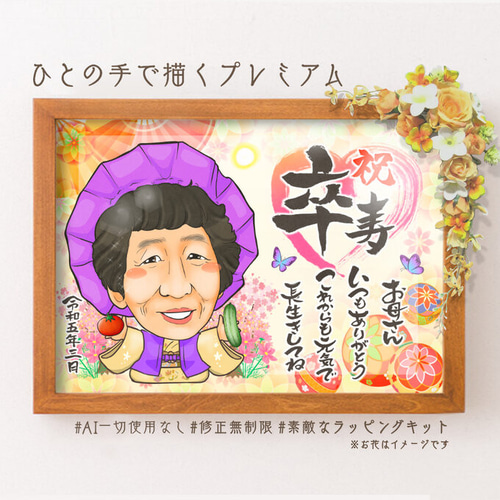 ひとの手で描くプレミアム
祝
卒寿
お母さん
いつもありがとう
これからも元気で
長生きしてね
令和五年三日
#AI一切使用なし #修正無制限 #素敵なラッピングキット
※お花はイメージです